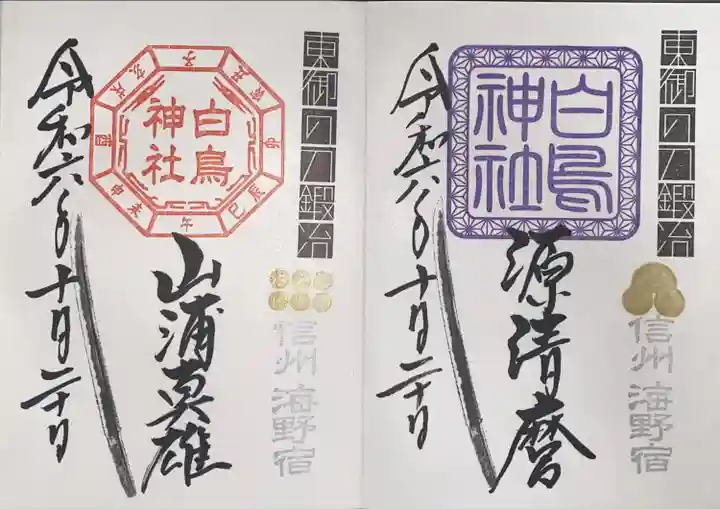 東御の刀鍛冶
源清麿
白鳥
神社
信州 海野宿
令和六年十月二十日
東御の刀鍛冶
山浦真雄
白鳥
神社
子
丑
寅
卯
辰
巳
午
未
申
酉
戌
亥
信州 海野宿
令和六年十月二十日